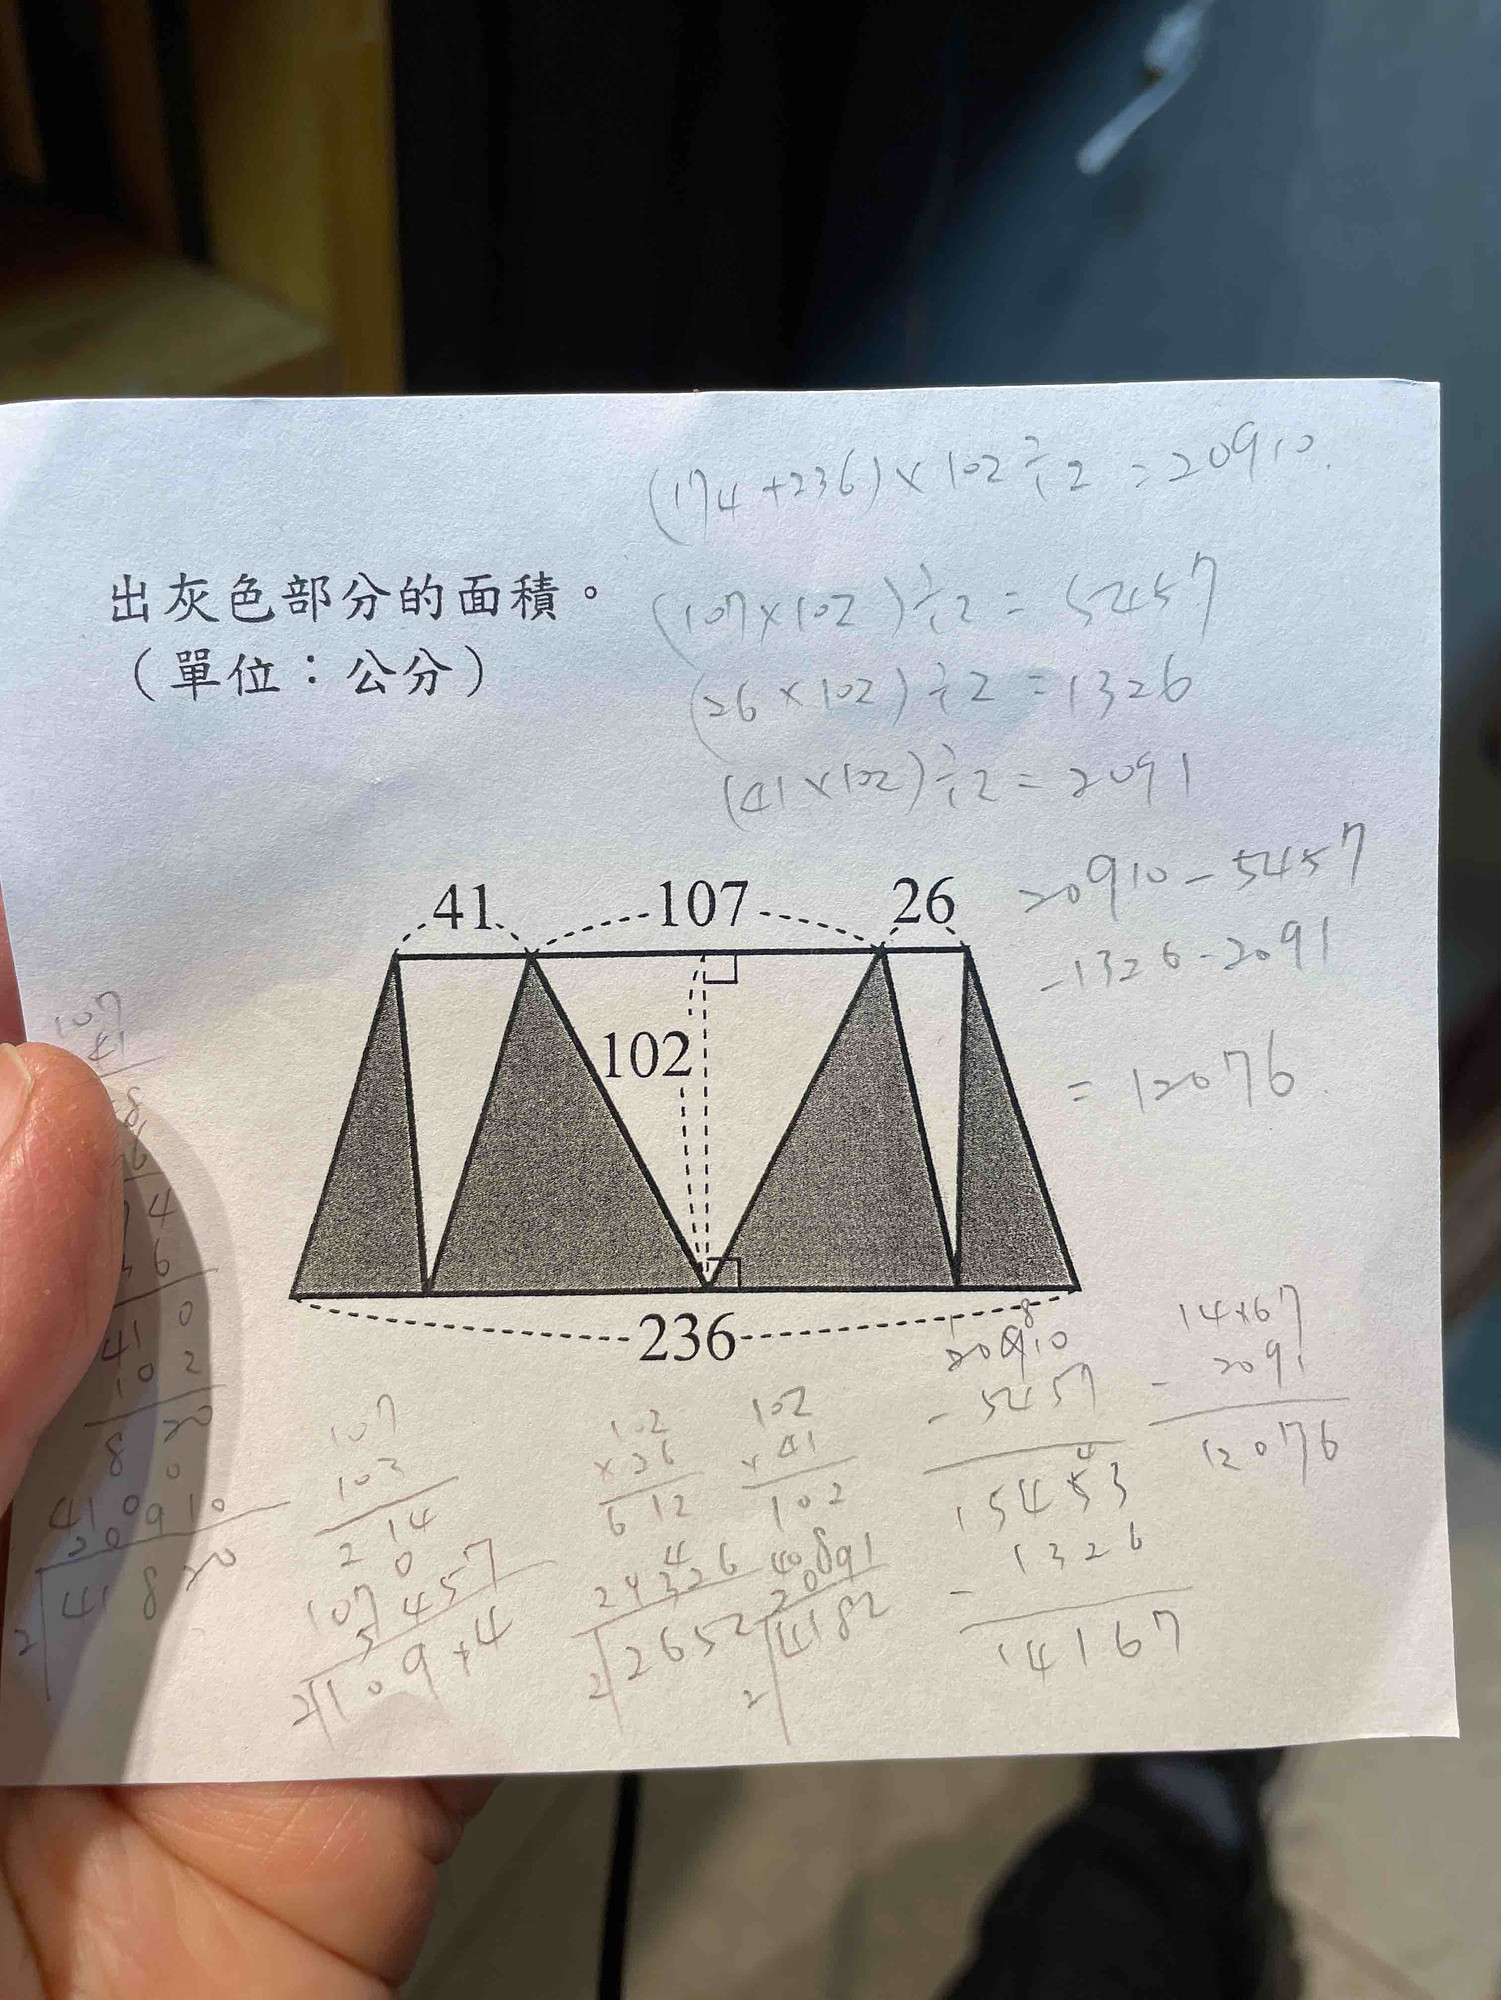 (174+236)×102÷2=20910.
出灰色部分的面積。
(107×102)÷2=5457
(單位：公分)
(26×102)÷2=1326
(41×102)÷2=2091
20910-5457
-1326-2091
=12076.
41 107 26
102
236
107
41
410
102
820
0
410
20910
2 41820
107
102
214
0
107
5457
102
×26
612
1326
2 2652
102
×41
102
2091
2 4182
20910
-5457
15453
-1326
14167
14167
-2091
12076